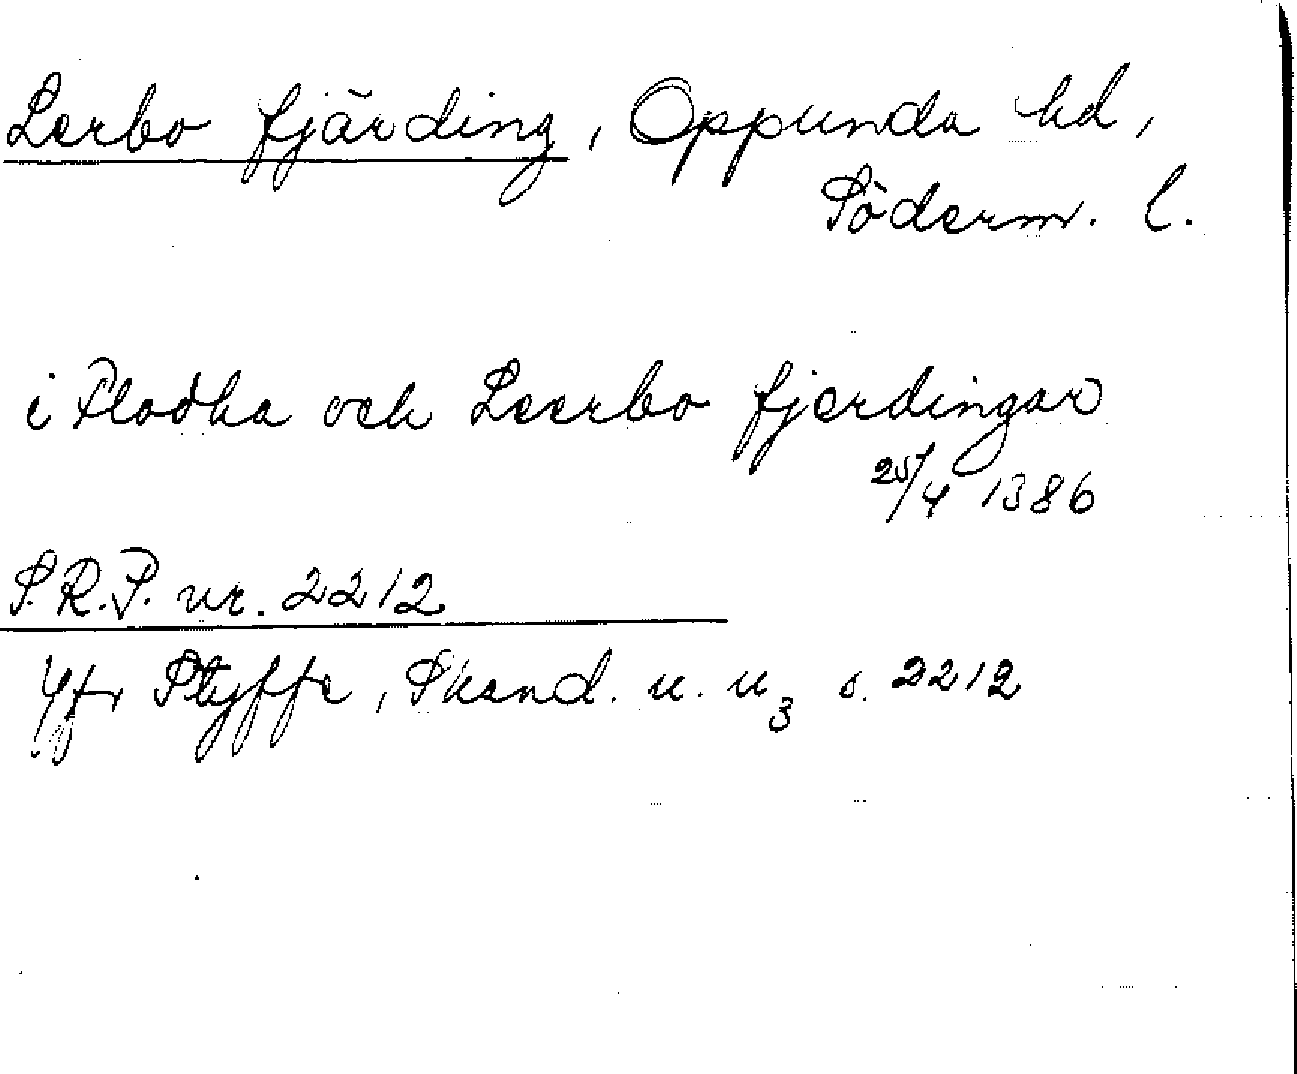 Lerbo fjärding, Oppunda hd,
Söderm. l.
i Flodha och Leerbo fjerdingar
25/4 1386
S.R.P. nr. 2212
Jfr Styffe, Skand. u. u3 s. 2212